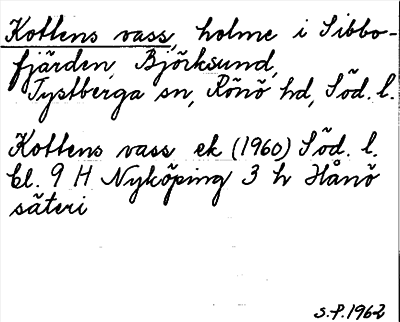 Kottens vass, holme i Sibbo-
fjärden, Björksund,
Tystberga sn, Rönö hd, Söd. l.
Kottens vass ek (1960) Söd. l.
bl. 9 H Nyköping 3 h Hånö
säteri
S.P. 1962